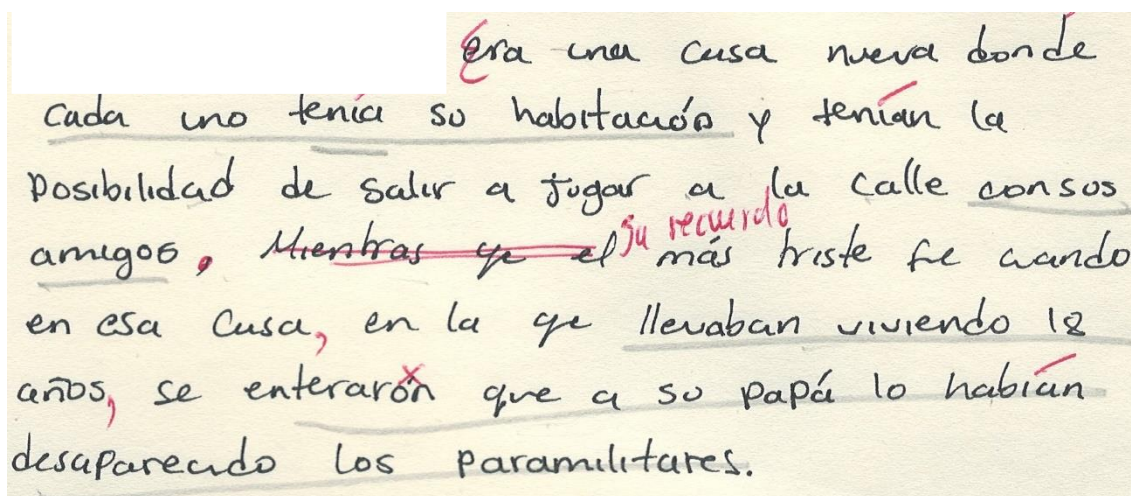 era una casa nueva donde
cada uno tenía su habitación y tenían la
posibilidad de salir a jugar a la calle con sus
amigos. Mientras qe el su recuerdo más triste fe cuando
en esa casa, en la qe llevaban viviendo 12
años, se enterarón que a su papá lo habían
desaparecido los paramilitares.